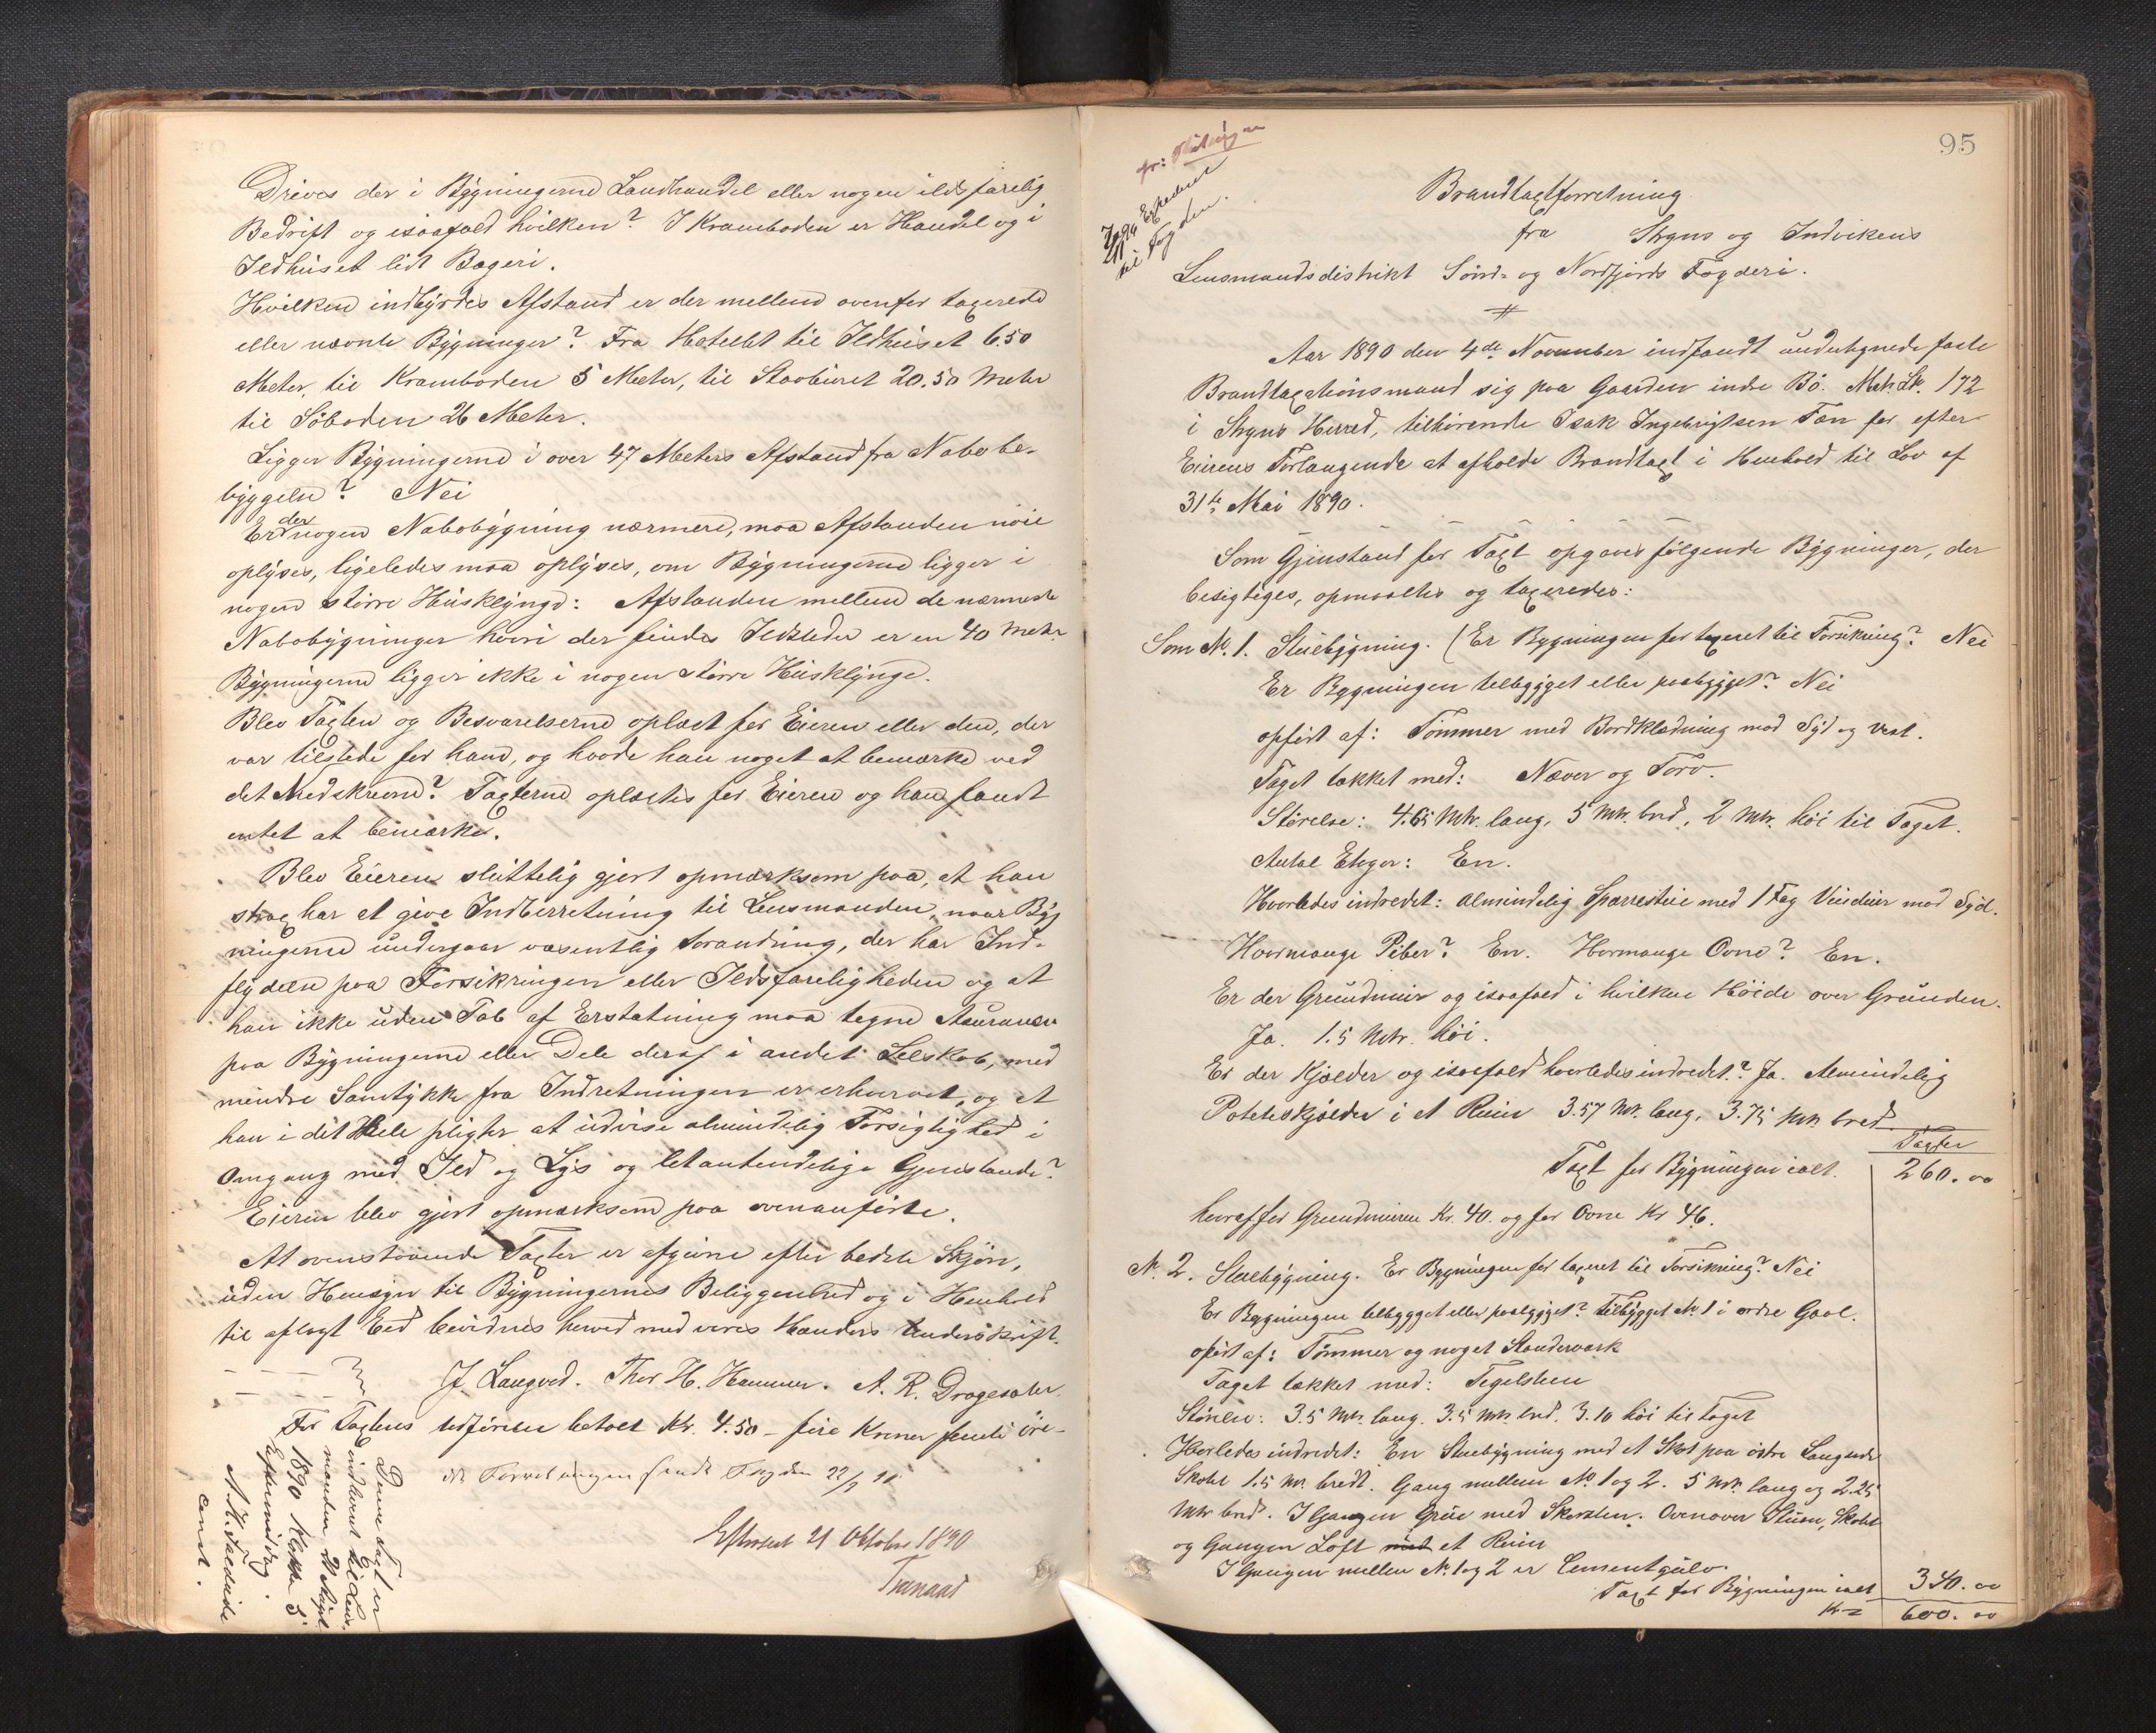 Drives der i Bygningerne Landhandel eller nogen ildsfarlig
Bedrift og isaafald hvilken? I Kramboden er Handel og i
Ildhuset lidt Bageri.
Hvilken indbyrdes Afstand er der mellem ovenfor taxerede
eller nævnte Bygninger? Fra Hotellet til Ildhuset 6.50
Meter, til Kramboden 5 Meter, til Stavburet 20.50 Meter
til Søboden 26 Meter.
Ligger Bygningerne i over 47 Meters Afstand fra Nabobe-
byggelse? Nei
Er der nogen Nabobygning nærmere, maa Afstanden nøie
oplyses, ligeledes maa oplyses, om Bygningerne ligger i
nogen større Husklynge: Afstanden mellem de nærmeste
Nabobygninger hvori der findes Ildsteder er en 40 Meter
Bygningerne ligger ikke i nogen større Husklynge.
Blev Taxten og Besvarelserne oplæst for Eieren eller den, der
var tilstede for ham, og havde han noget at bemærke ved
det Nedskrevne? Taxterne oplæstes for Eieren og han fandt
intet at bemærke.
Blev Eieren sluttelig gjort opmærksom paa, at han
strax har at give Indberetning til Lensmanden, naar Byg
ningerne undergaar væsentlig Forandring, der har Ind-
flydelse paa Forsikringen eller Ildsfarligheden og at
han ikke uden Tab af Erstatning maa tegne Assurance
paa Bygningerne eller Dele deraf i andet Selskab, med
mindre Samtykke fra Indretningen er erhvervet, og at
han i det Hele pligter at udvise almindelig Forsigtighed i
Omgang med Ild og Lys og letantendelige Gjenstande?
Eieren blev gjort opmærksom paa ovenanførte.
At ovenstaaende Taxter er afgivne efter bedste Skjøn,
uden Hensyn til Bygningernes Beliggenhed og i Henhold
til aflagt Eed bevidnes herved med vores Hænders Underskrift.
J. Langved. Thor H. Hammer. A. R. Dragesæter.
For Taxtens Udførelse betalt Kr. 4.50 – fire Kroner femti øre –
Forretningen sendt Fogden 22/9 90
Denne Taxt er
indkommet til Lens-
manden
1890 Klokken 5
Eftermiddag.
const.
Efterseet 21 Oktober 1890
95
til Fogden.
Brandtaxtforretning
fra Stryns og Indvikens
Lensmandsdistrikt Sønd- og Nordfjords Fogderi.
Aar 1890 den 4de November indfandt undertegnede faste
Brandtaxationsmænd sig paa Gaarden indre Bø. Matr. Lb. 172
i Stryns Herred, tilhørende Isak Ingebrigtsen Tæn for efter
Eierens Forlangende at afholde Brandtaxt i Henhold til Lov af
31te Mai 1890.
Som Gjenstand for Taxt opgaves følgende Bygninger, der
besigtiges, opmaaltes og taxeredes:
Som No. 1. Stuebygning. (Er Bygningen før taxeret til Forsikring? Nei
Er Bygningen tilbygget eller paabygget? Nei
opført af: Tømmer med Bordklædning mod Syd og Vest.
Taget tækket med: Næver og Torv.
Størelse: 4.65 Mtr. lang, 5 Mtr. bred, 2 Mtr. høi til Taget.
Antal Etager: En.
Hvorledes indredet: almindelig Sparrestue med 1 Fag Vinduer mod Syd.
Hvormange Piber? En. Hvormange Ovne? En.
Er der Grundmur og isaafald i hvilken Høide over Grunden.
Ja. 1.5 Mtr. høi.
Er der Kjælder og isaafald hvorledes indredet? Ja. Almindelig
Poteteskjælder i et Rum 3.57 Mtr. lang, 3.75 Mtr. bred.
Taxter
Taxt for Bygningen ialt. 260.00
hvoraf for Grundmuren Kr. 40. og for Ovne Kr 46.
No. 2. Stuebygning. Er Bygningen før taxeret til Forsikring? Nei
Er Bygningen tilbygget eller paabygget? Tilbygget No. 1 i østre Gavl.
opført af: Tømmer og noget Standerværk
Taget tækket med: Tegelsten
Størelse: 3.5 Mtr. lang. 3.5 Mtr. bred. 3.10 høi til Taget
Hvorledes indredet: En Stuebygning med et Skot paa østre Langside
Skotet 1.5 Mtr. bredt. Gang mellem No 1 og 2. 5 Mtr. lang og 2.25
Mtr bred. I Gangen Grue med Skorsten. Ovenover Stuen, Skotet
og Gangen Loft med et Rum
I Gangen mellem No. 1 og 2 er Cementgulv.
Taxt for Bygningen ialt 340.00
Kr 600.00